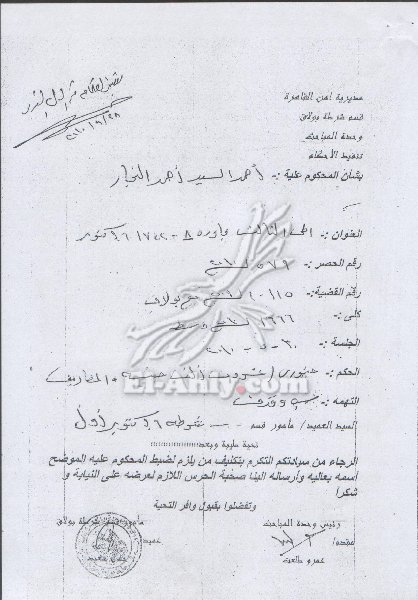 مديرية امن القاهرة
قسم شرطة بولاق
وحدة المباحث
تنفيذ الأحكام
بشأن المحكوم علية :- أحمد السيد أحمد النجار
العنوان :- الحي الثالث مجاوره ٨ - ١٧٤٢ / ٦ اكتوبر
رقم الحصر :- ٥٧٩
رقم القضية :- ١٠١١٥
كلى :- ١٩٦٦
الجلسة :- ٣٠ - ٥ - ٢٠١٠
الحكم :- حضوري والمصاريف
التهمه :- سب وقذف
السيد العميد / مأمور قسم - شرطة ٦ اكتوبر أول
تحية طيبة وبعد
الرجاء من سيادتكم التكرم بتكليف من يلزم لضبط المحكوم عليه الموضح
أسمه بعاليه وأرساله الينا صحبة الحرس اللازم لعرضه على النيابة و
شكرا
وتفضلوا بقبول وافر التحية
رئيس وحدة المباحث
مأمور قسم شرطة بولاق
عميد
عمرو طلعت
El-Ahly.com